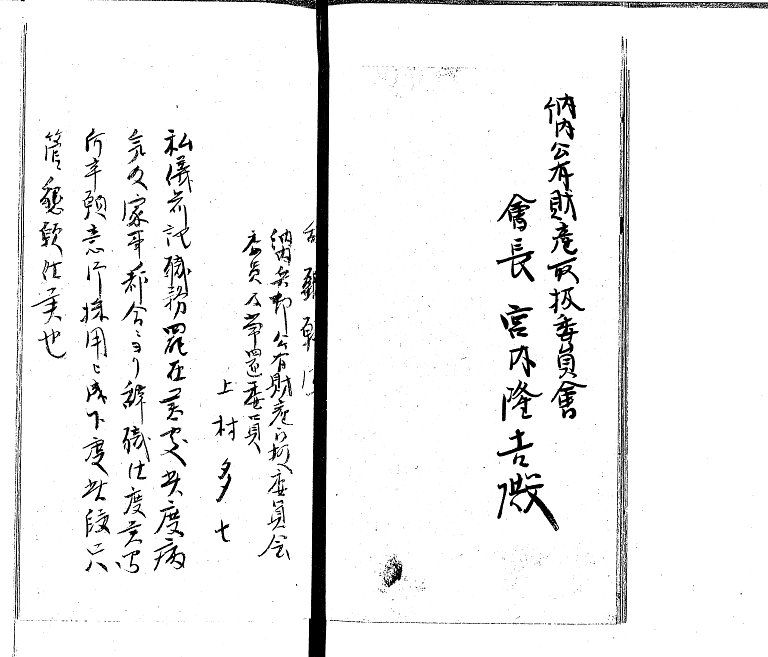 納内公有財産取扱委員會
會長 宮内隆吉殿
納内兵邨公有財産取扱委員会
委員及常置委員
上村多七
私儀前記職務罷在候処此度病
気及家事都合ニヨリ辞職仕度候間
何卒願意御採用被成下度此段只
管懇願仕候也